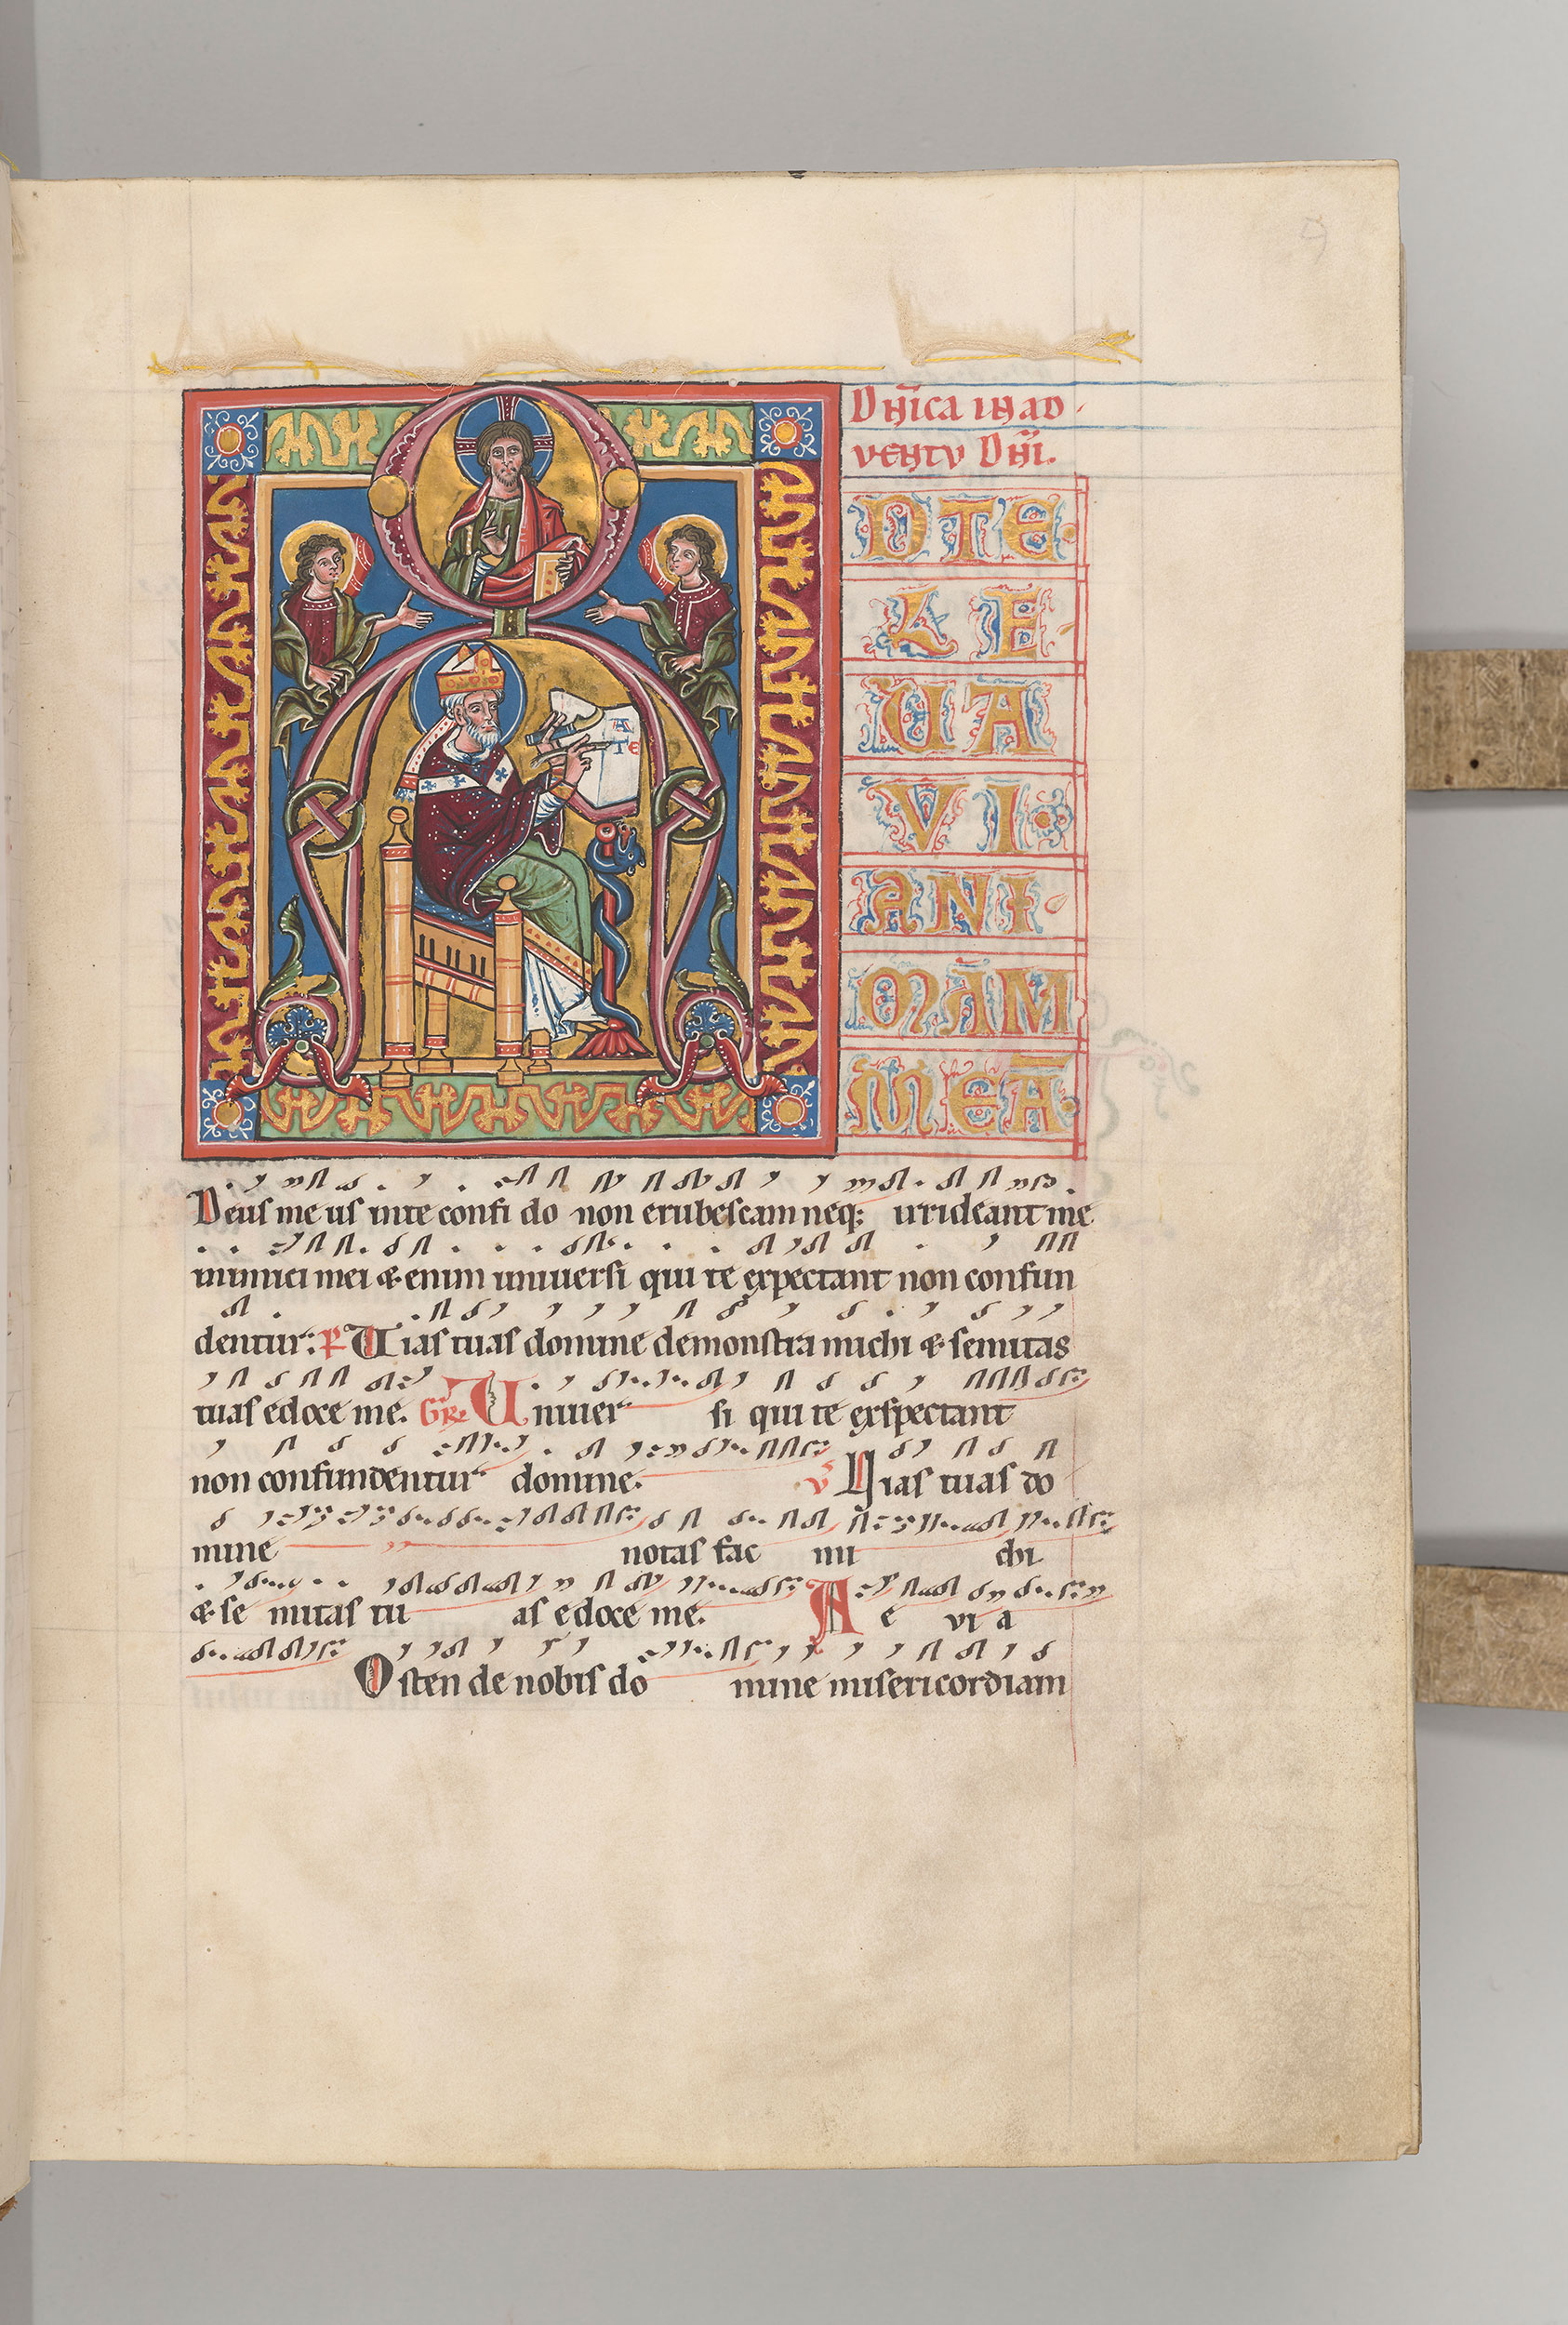 Dn̄ica in ad
ventv Dn̄i.
D TE
LE
UA
VI
ANI
MAM
MEA
Deus me us inte confi do non erubescam neq; urideant me
inimici mei & enim uniuersi qui te expectant non confun
dentur. P Uias tuas domine demonstra michi & semitas
tuas edoce me. GR. Uniuer si qui te exspectant
non confundentur domine. V Uias tuas do
mine notas fac mi chi
& se mitas tu as edoce me. A e vi a
Osten de nobis do mine misericordiam